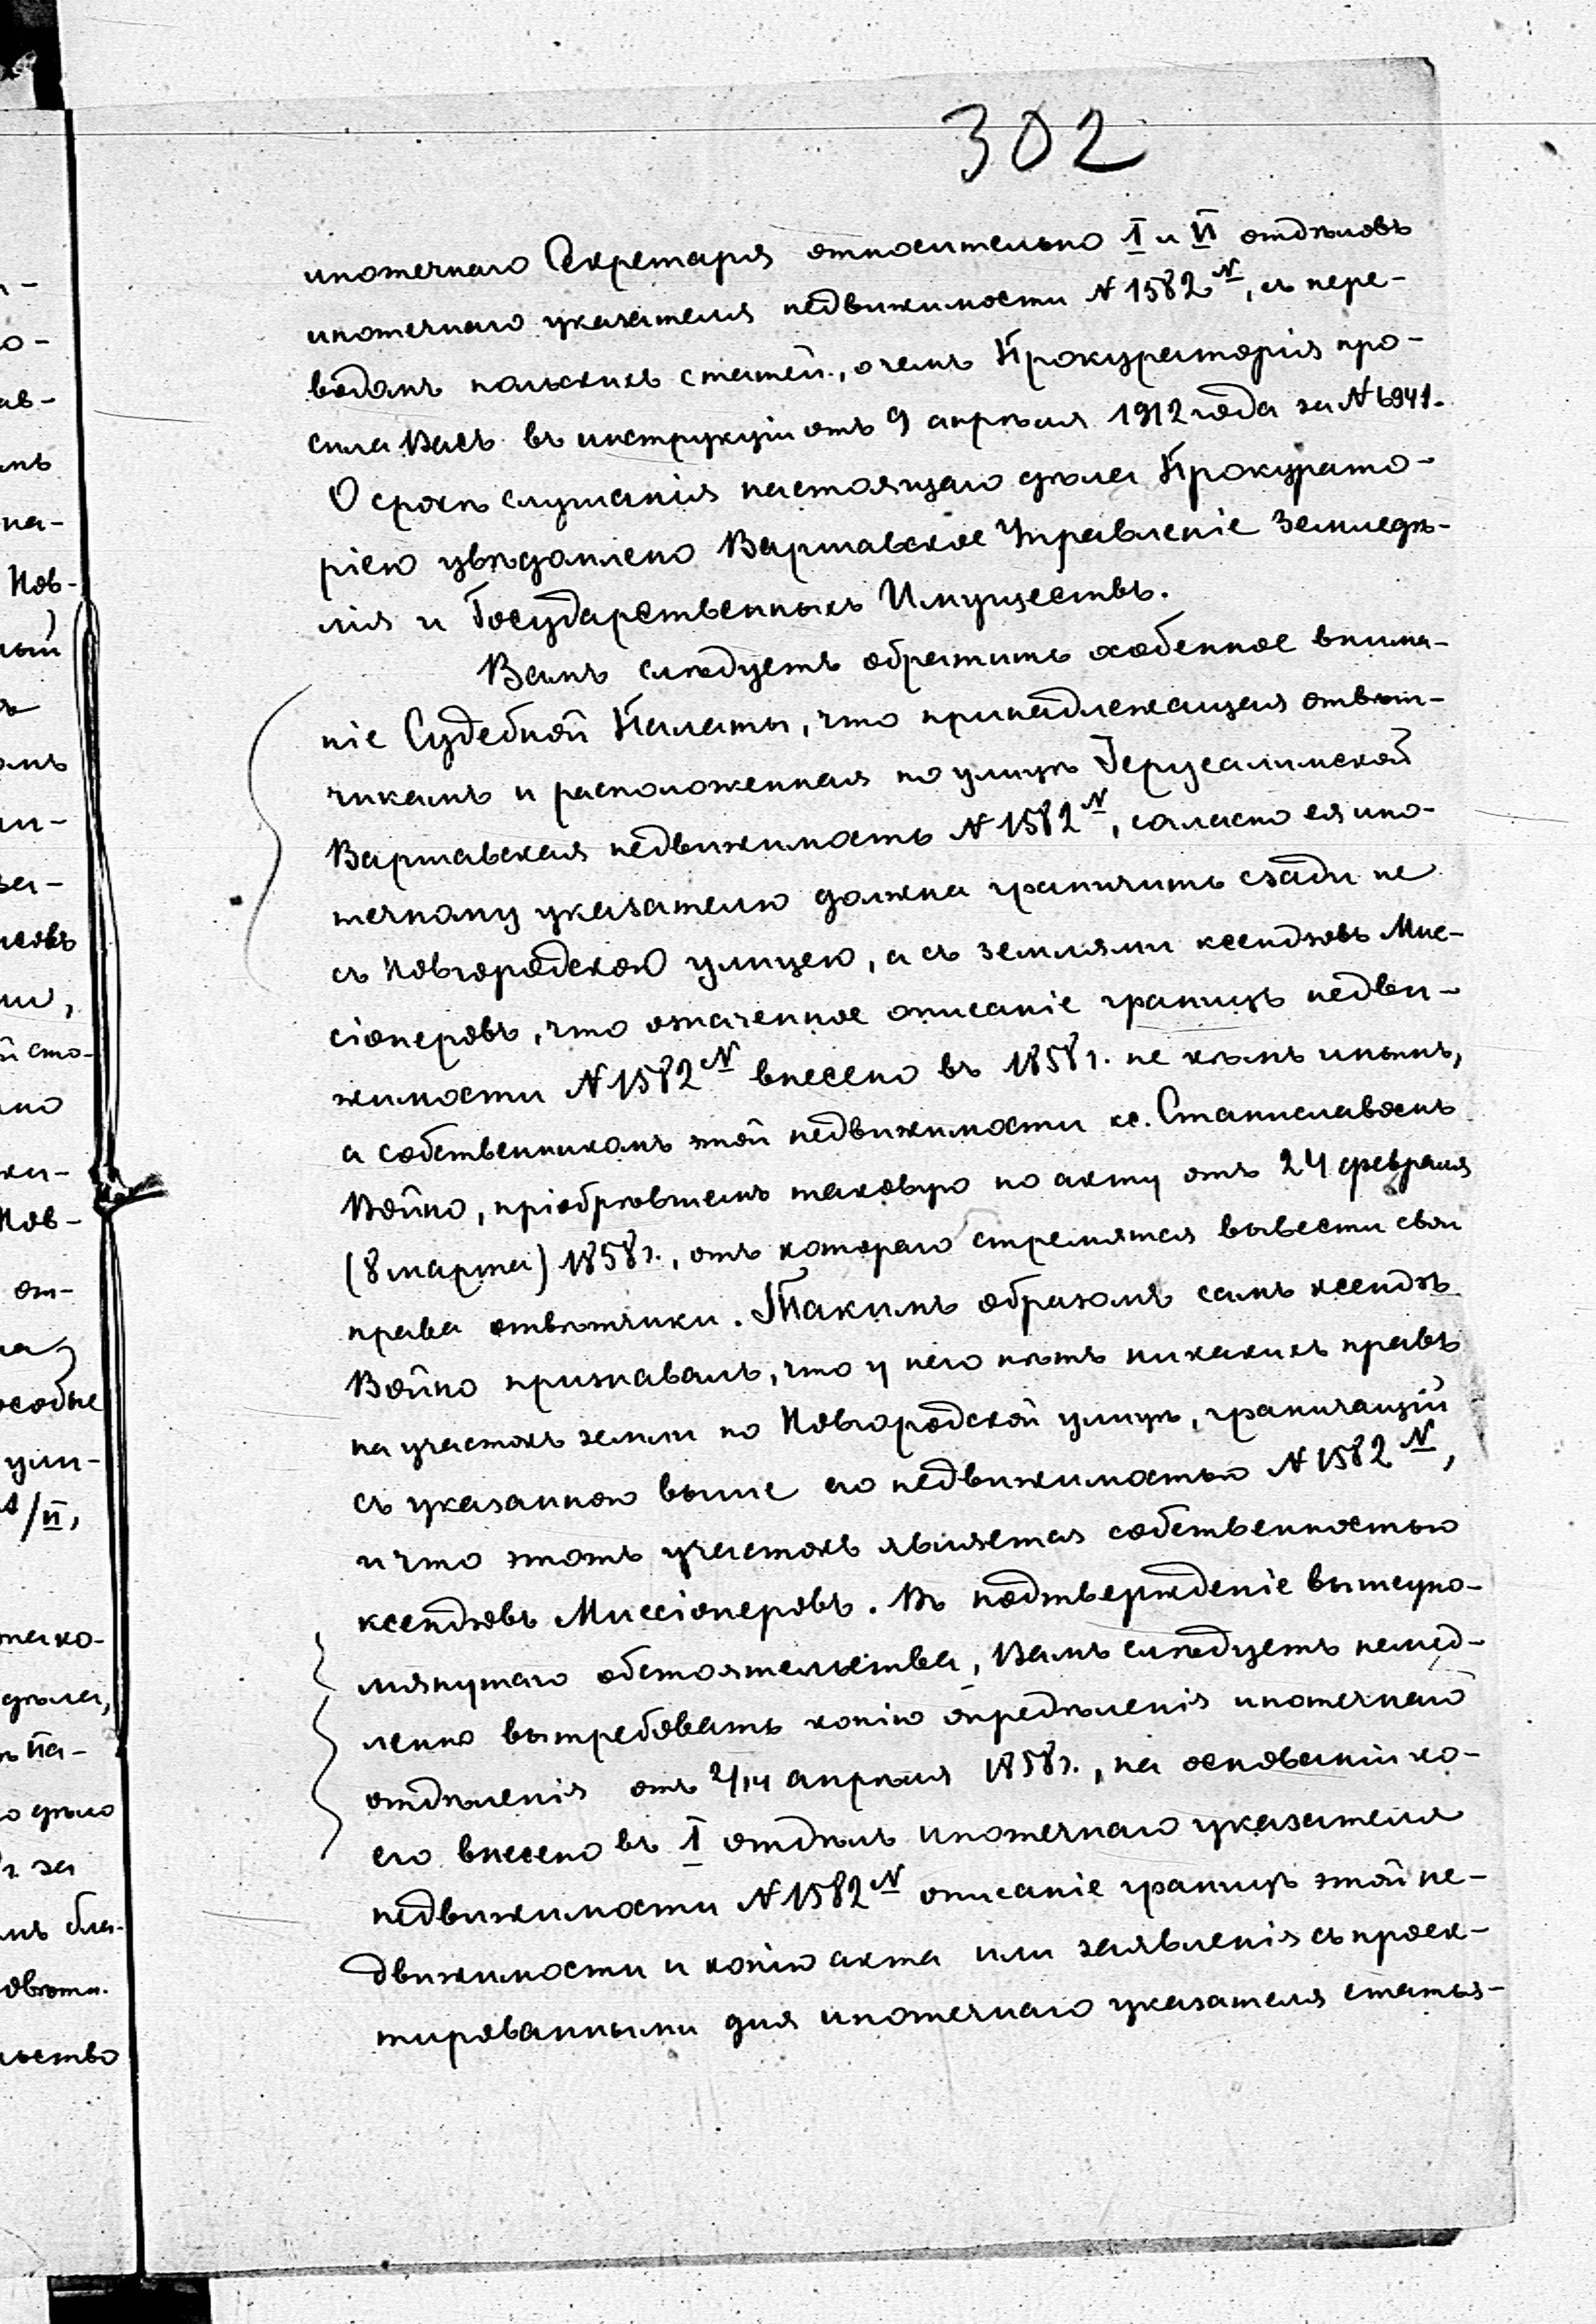 302
ипотечнаго Секретаря относительно I и VI отдѣловъ
ипотечнаго указателя недвижимости N 1582 N, съ пере-
водомъ польскихъ статей, о чемъ Прокураторія про-
сила Васъ въ инструкціи отъ 9 апрѣля 1912 года за N 6941.
О срокѣ слушанія настоящаго дѣла Прокурато-
ріею увѣдомлено Варшавское Управленіе Земледѣ-
лія и Государственныхъ Имуществъ.
Вамъ слѣдуетъ обратить особенное внима-
ніе Судебной Палаты, что принадлежащая отвѣт-
чикамъ и расположенная по улицѣ Іерусалимской
Варшавская недвижимость N 1582 N, согласно ея ипо-
течному указателю должна граничить сзади не
съ Новгородскою улицею, а съ землями ксендзовъ Мис-
сіонеровъ, что означенное описаніе границъ недви-
жимости N 1582 N внесено въ 1858 г. не кѣмъ инымъ,
а собственникомъ этой недвижимости кс. Станиславомъ
Войно, пріобрѣвшемъ таковую по акту отъ 24 февраля
(8 марта) 1858 г., отъ котораго стремятся вывести свои
права отвѣтчики. Такимъ образомъ самъ ксендзъ
Войно признавалъ, что у него нѣтъ никакихъ правъ
на участокъ земли по Новгородской улицѣ, граничащій
съ указанною выше его недвижимостью N 1582 N,
и что этотъ участокъ является собственностью
ксендзовъ Миссіонеровъ. Въ подтвержденіе вышеупо-
мянутаго обстоятельства, Вамъ слѣдуетъ немед-
ленно вытребовать копію опредѣленія ипотечнаго
отдѣленія отъ 2/14 апрѣля 1858 г., на основаніи ко-
его внесено въ I отдѣлъ ипотечнаго указателя
недвижимости N 1582 N описаніе границъ этой не-
движимости и копію акта или заявленія съ проек-
тированными для ипотечнаго указателя статья-